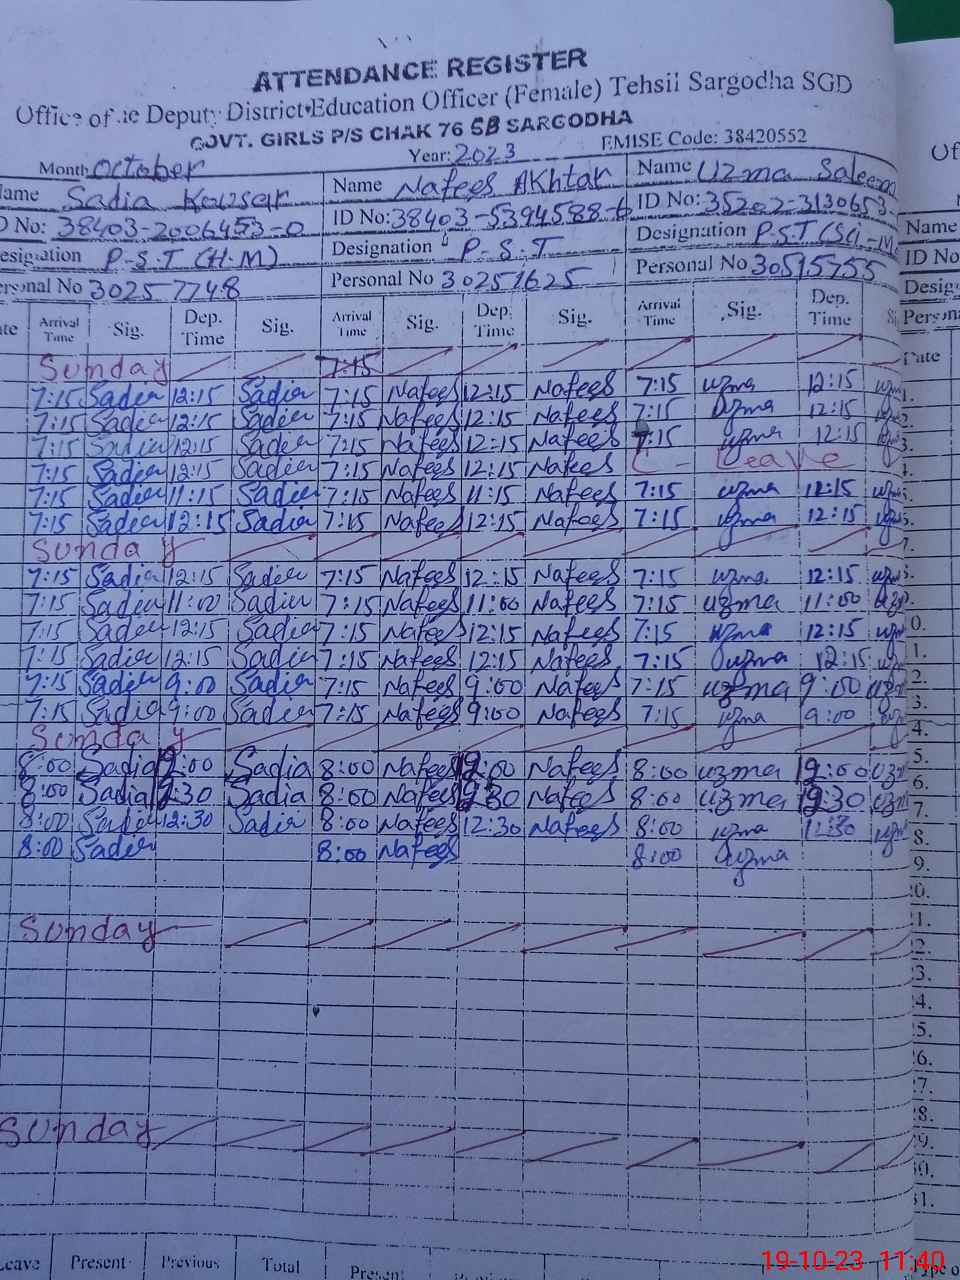 ATTENDANCE REGISTER
Office of the Deputy District Education Officer (Female) Tehsil Sargodha SGD
GOVT. GIRLS P/S CHAK 76 SB SARGODHA
Month October Year: 2023 EMISE Code: 38420552
Name Sadia Kowsar Name Nafees Akhtar Name Uzma Saleem
ID No: 38403-2006453-0 ID No: 38403-5394588-6 ID No: 35202-3130653-
Designation P-S.T (H.M) Designation P.S.T Designation P.S.T (Sci-M
Personal No 30257748 Personal No 30251625 Personal No 30515755
Arrival Time Sig. Dep. Time Sig. Arrival Time Sig. Dep. Time Sig. Arrival Time Sig. Dep. Time
Sunday 7:15
7:15 Sadia 12:15 Sadia 7:15 Nafees 12:15 Nafees 7:15 uzma 12:15
7:15 Sadia 12:15 Sadia 7:15 Nafees 12:15 Nafees 7:15 uzma 12:15
7:15 Sadia 12:15 Sadia 7:15 Nafees 12:15 Nafees 7:15 uzma 12:15
7:15 Sadia 12:15 Sadia 7:15 Nafees 12:15 Nafees C - Leave
7:15 Sadia 11:15 Sadia 7:15 Nafees 11:15 Nafees 7:15 uzma 11:15
7:15 Sadia 12:15 Sadia 7:15 Nafees 12:15 Nafees 7:15 uzma 12:15
Sunday
7:15 Sadia 12:15 Sadia 7:15 Nafees 12:15 Nafees 7:15 uzma 12:15
7:15 Sadia 11:00 Sadia 7:15 Nafees 11:00 Nafees 7:15 uzma 11:00
7:15 Sadia 12:15 Sadia 7:15 Nafees 12:15 Nafees 7:15 uzma 12:15
7:15 Sadia 12:15 Sadia 7:15 Nafees 12:15 Nafees 7:15 uzma 12:15
7:15 Sadia 9:00 Sadia 7:15 Nafees 9:00 Nafees 7:15 uzma 9:00
7:15 Sadia 9:00 Sadia 7:15 Nafees 9:00 Nafees 7:15 uzma 9:00
Sunday
8:00 Sadia 12:00 Sadia 8:00 Nafees 12:00 Nafees 8:00 uzma 12:00
8:00 Sadia 12:30 Sadia 8:00 Nafees 12:30 Nafees 8:00 uzma 12:30
8:00 Sadia 12:30 Sadia 8:00 Nafees 12:30 Nafees 8:00 uzma 12:30
8:00 Sadia 8:00 Nafees 8:00 uzma
Sunday
Sunday
Leave Present Previous Total Present
Name
ID No
Desig
Person
Date
19-10-23 11:40